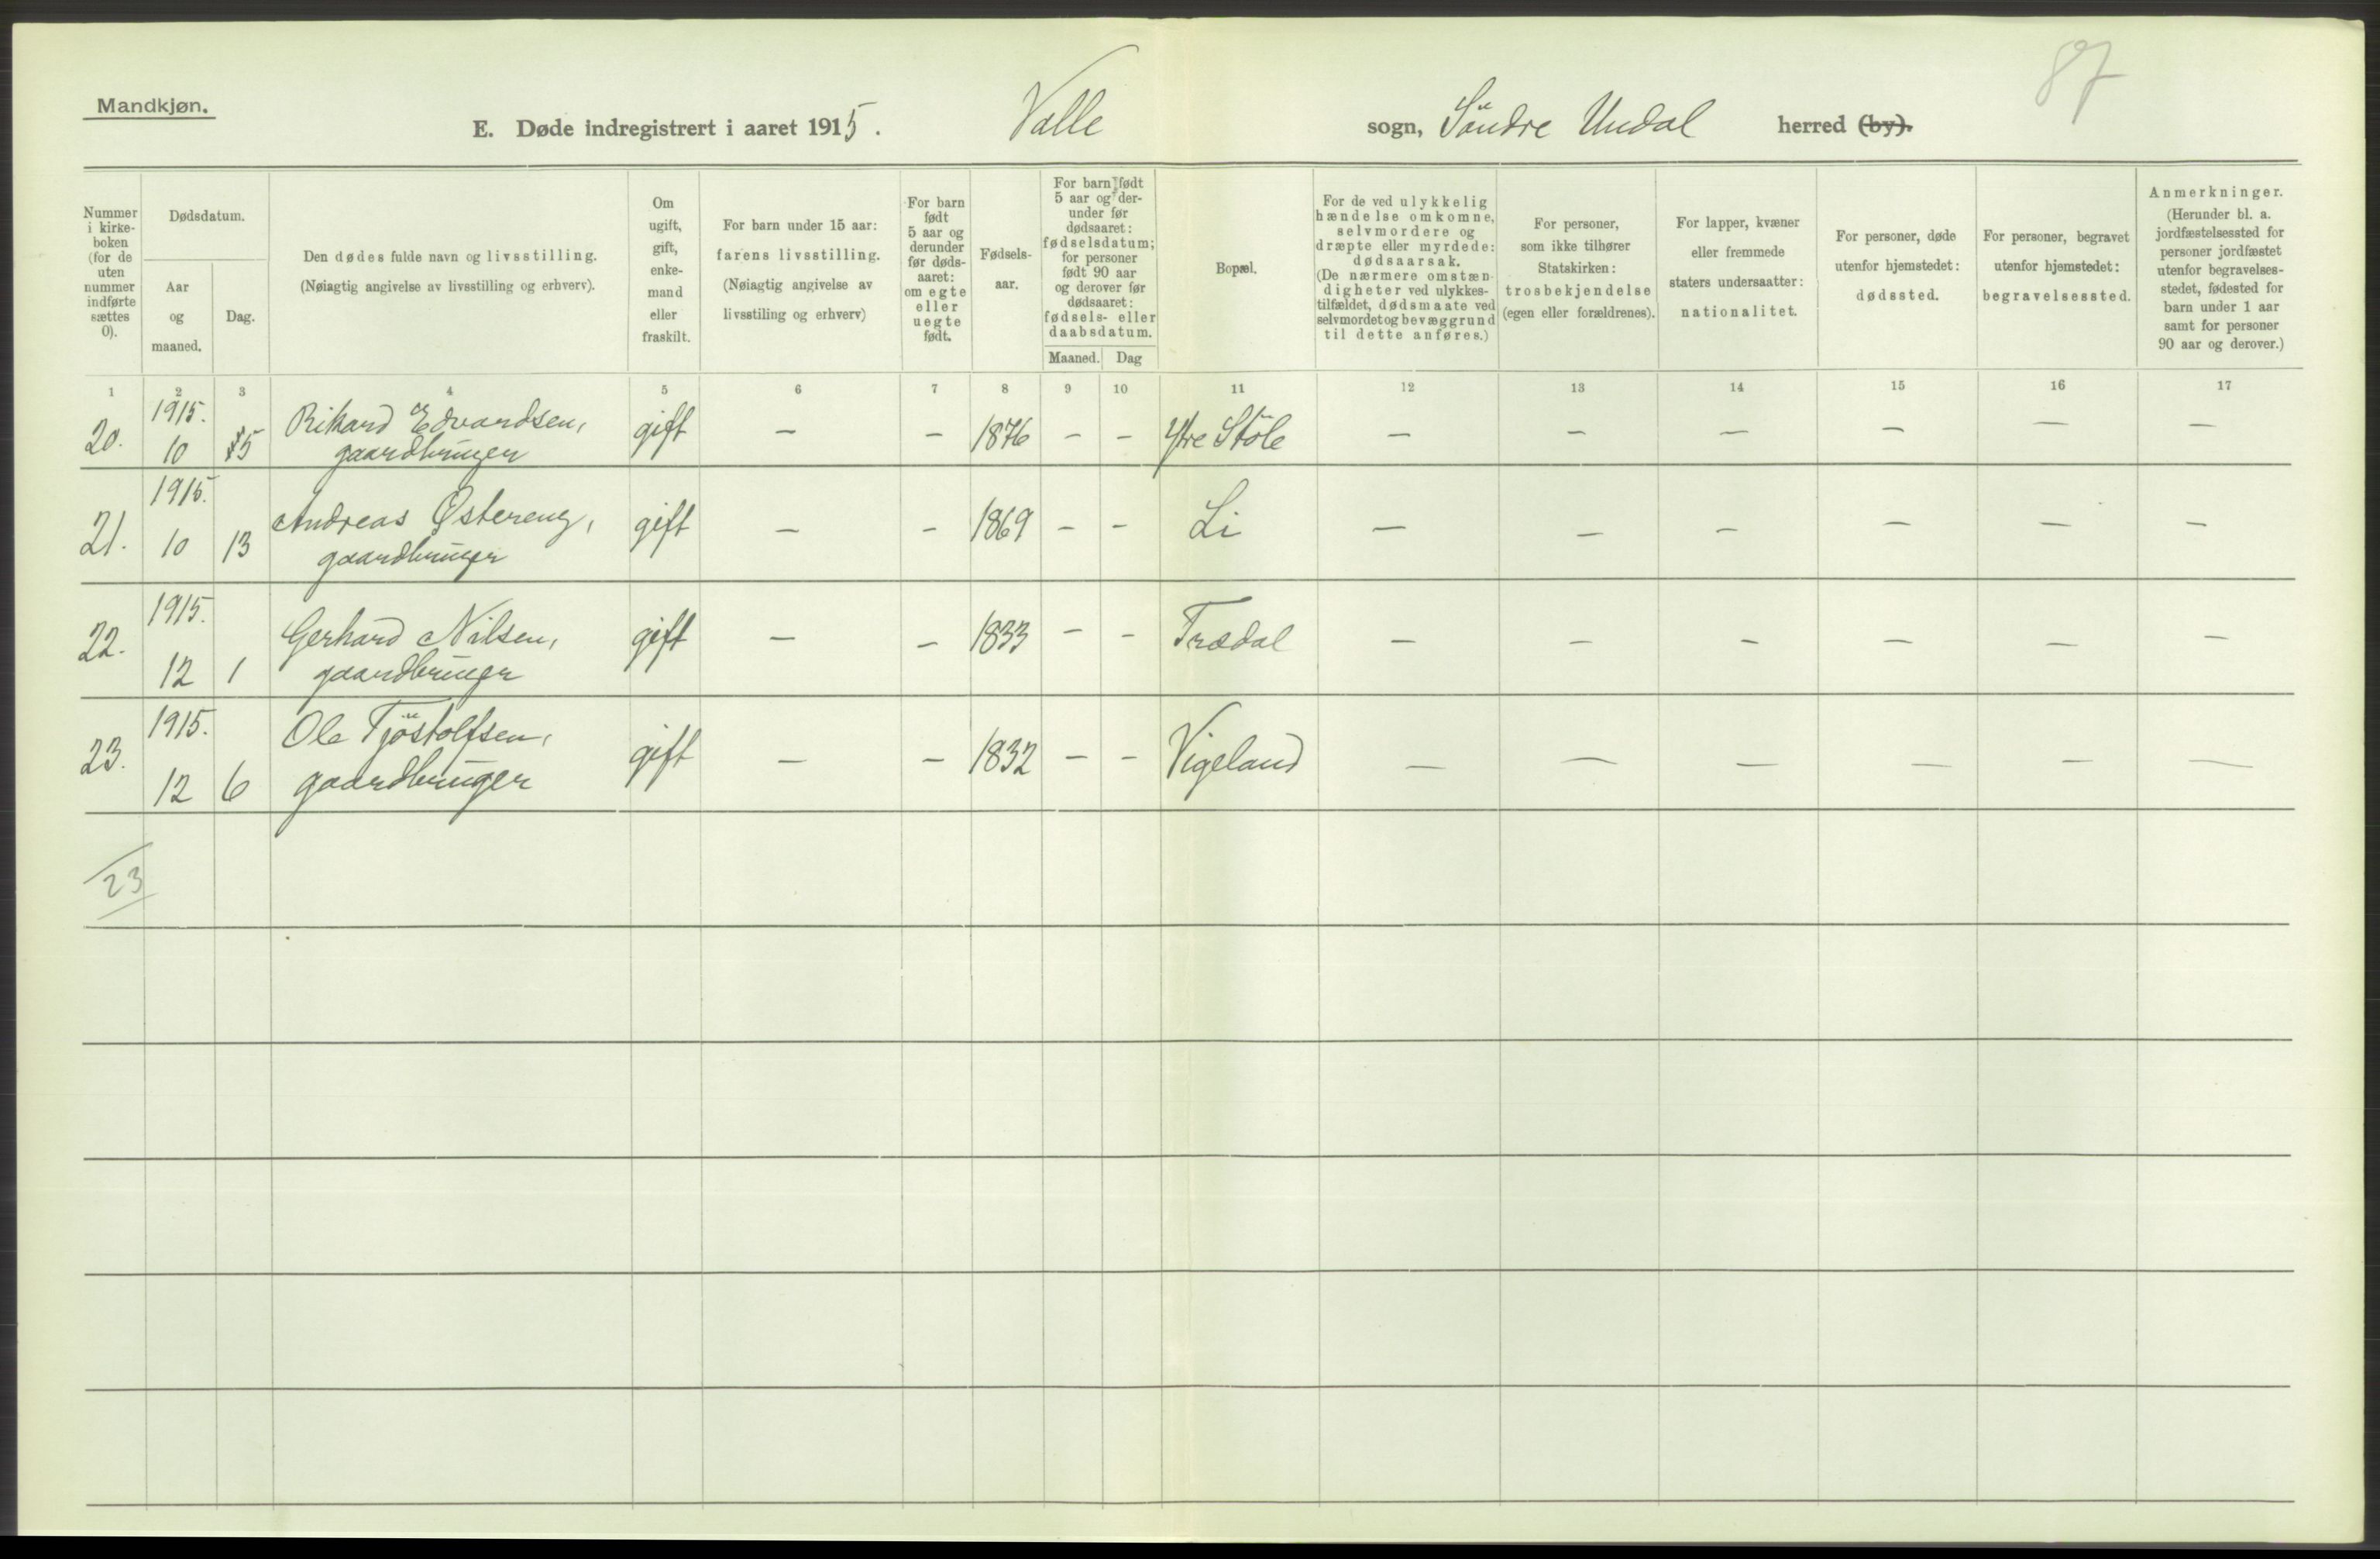 87
Mandkjøn.
E. Døde indregistrert i aaret 1915. Valle sogn, Söndre Undal herred (by).
Nummer
i kirke-
boken
(for de
uten
nummer
indførte
sættes
0).
Dødsdatum.
Aar
og
maaned.
Dag.
Den dødes fulde navn og livsstilling.
(Nøiagtig angivelse av livsstilling og erhverv).
Om
ugift,
gift,
enke-
mand
eller
fraskilt.
For barn under 15 aar:
farens livsstilling.
(Nøiagtig angivelse av
livsstiling og erhverv)
For barn
født
5 aar og
derunder
før døds-
aaret:
om egte
eller
uegte
født.
Fødsels-
aar.
For barn født
5 aar og der-
under før
dødsaaret:
fødselsdatum;
for personer
født 90 aar
og derover før
dødsaaret:
fødsels- eller
daabsdatum.
Maaned. Dag
Bopæl.
For de ved ulykkelig
hændelse omkomne,
selvmordere og
dræpte eller myrdede:
dødsaarsak.
(De nærmere omstæn-
digheter ved ulykkes-
tilfældet, dødsmaate ved
selvmordet og bevæggrund
til dette anføres.)
For personer,
som ikke tilhører
Statskirken:
trosbekjendelse
(egen eller forældrenes).
For lapper, kvæner
eller fremmede
staters undersaatter:
nationalitet.
For personer, døde
utenfor hjemstedet:
dødssted.
For personer, begravet
utenfor hjemstedet:
begravelsessted.
Anmerkninger.
(Herunder bl. a.
jordfæstelsessted for
personer jordfæstet
utenfor begravelses-
stedet, fødested for
barn under 1 aar
samt for personer
90 aar og derover.)
1 2 3 4 5 6 7 8 9 10 11 12 13 14 15 16 17
1915.
20. 10 5 Rikard Edvardsen, gift — — 1876 — — Ytre Stöle — — — — — —
gaardbruger
1915.
21. 10 13 Andreas Østereng, gift — — 1869 — — Li — — — — — —
gaardbruger
1915.
22. 12 1 Gerhard Nilsen, gift — — 1833 — — Trædal — — — — — —
gaardbruger
1915.
23. 12 6 Ole Tjöstolfsen, gift — — 1832 — — Vigeland — — — — — —
gaardbruger
23